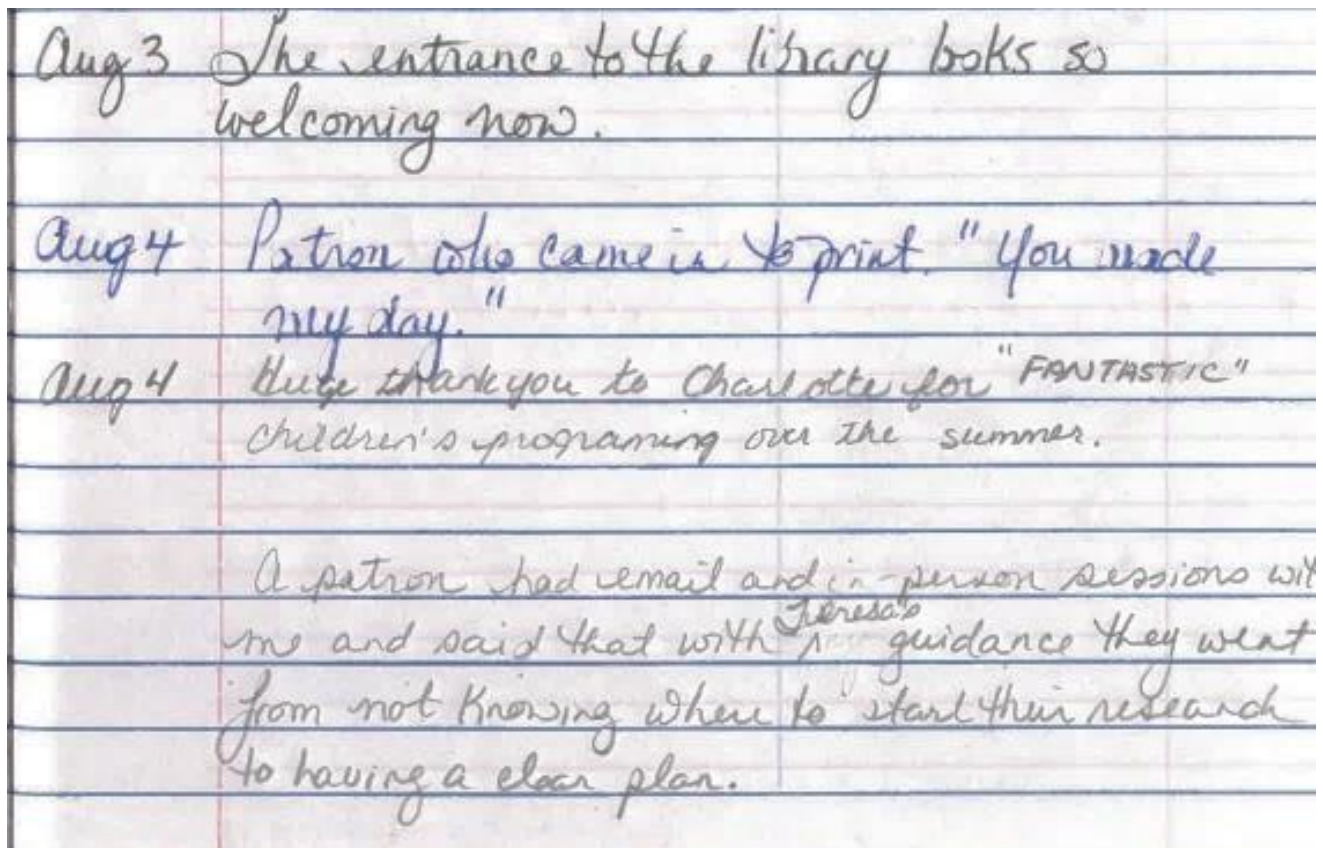 Aug 3 The entrance to the library looks so
welcoming now.
Aug 4 Patron who came in to print. "You made
my day."
Aug 4 Huge thank you to Charlotte for "FANTASTIC"
children's programing over the summer.
A patron had email and in-person sessions wit
me and said that with Teresa's guidance they went
from not knowing where to start their research
to having a clear plan.